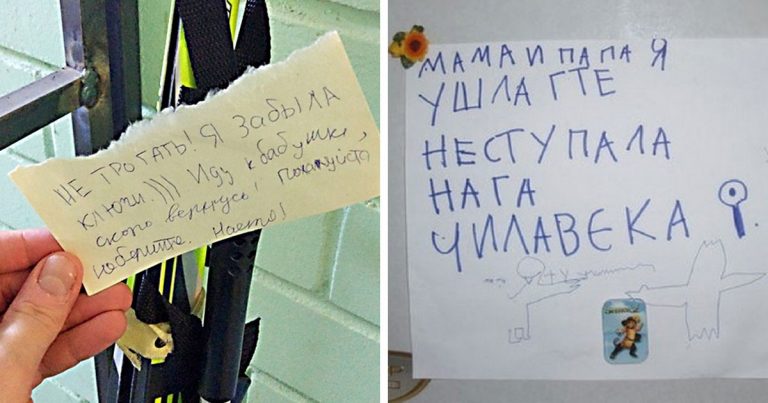 НЕ ТРОГАТЬ! Я ЗАБЫЛА
КЛЮЧИ.))) Иду к бабушке,
скоро вернусь! Пожалуйста,
Настя!
МАМА И ПАПА Я
УШЛА ГТЕ
НЕСТУПАЛА
НАГА
ЧИЛАВЕКА